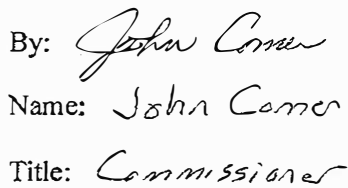 By: John Comer
Name: John Comer
Title: Commissioner